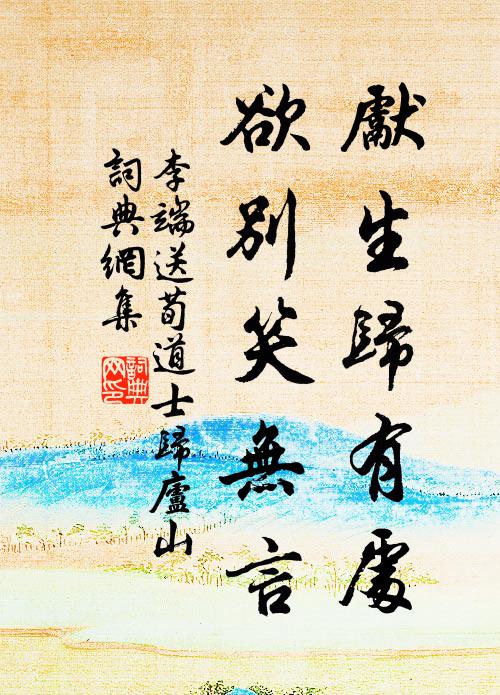 獻生歸有處
欲別笑無言
李端送荀道士歸廬山
詞典網集
詞典
网印